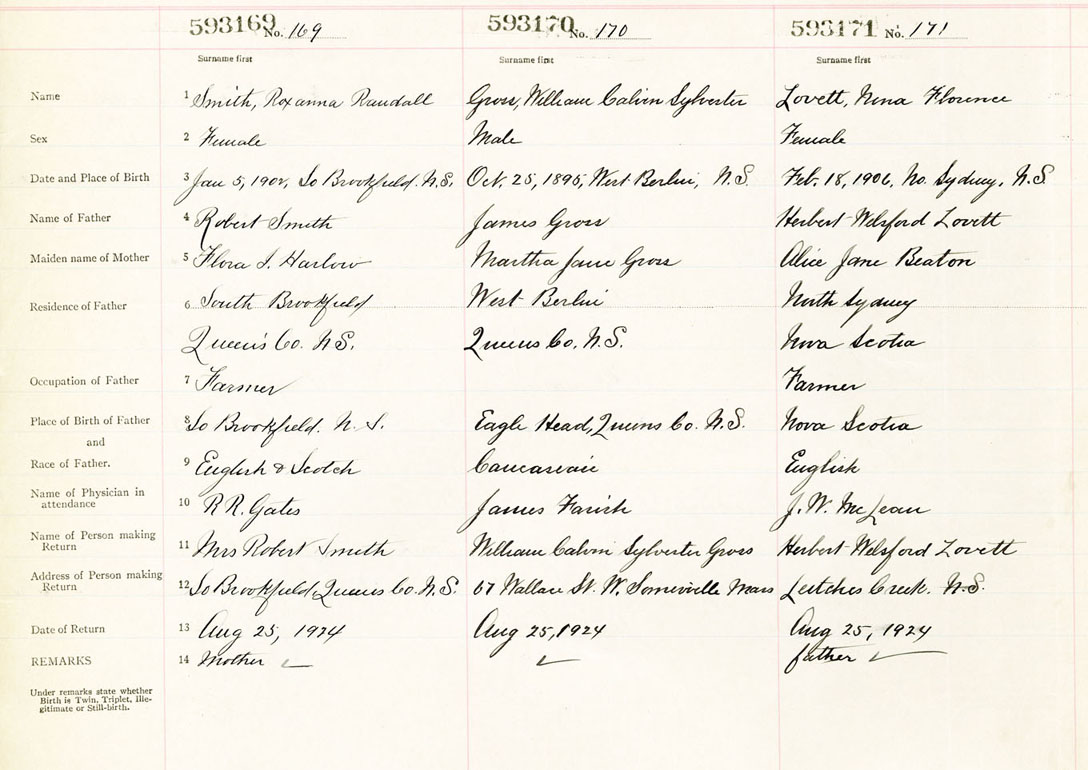 593169 No. 169 593170 No. 170 593171 No. 171
Surname first Surname first Surname first
Name 1 Smith, Roxanna Randall Gross, William Calvin Sylvester Lovett, Nina Florence
Sex 2 Female Male Female
Date and Place of Birth 3 Jan 5, 1902, So Brookfield. N.S. Oct. 25, 1895, West Berlin, N.S. Feb. 18, 1906, No. Sydney, N.S.
Name of Father 4 Robert Smith James Gross Herbert Welsford Lovett
Maiden name of Mother 5 Flora I. Harlow Martha Jane Gross Alice Jane Beaton
Residence of Father 6 South Brookfield West Berlin North Sydney
Queen's Co. N.S. Queens Co. N.S. Nova Scotia
Occupation of Father 7 Farmer Farmer
Place of Birth of Father 8 So Brookfield. N.S. Eagle Head, Queens Co. N.S. Nova Scotia
and
Race of Father. 9 English & Scotch Caucasain English
Name of Physician in
attendance 10 R R. Gates James Farish J. W. McLean
Name of Person making
Return 11 Mrs Robert Smith William Calvin Sylvester Gross Herbert Welsford Lovett
Address of Person making
Return 12 So Brookfield, Queens Co. N.S. 67 Wallace St. W. Somerville Mass Leitches Creek. N.S.
Date of Return 13 Aug 25, 1924 Aug 25, 1924 Aug 25, 1924
REMARKS 14 Mother father
Under remarks state whether
Birth is Twin, Triplet, Ille-
gitimate or Still-birth.